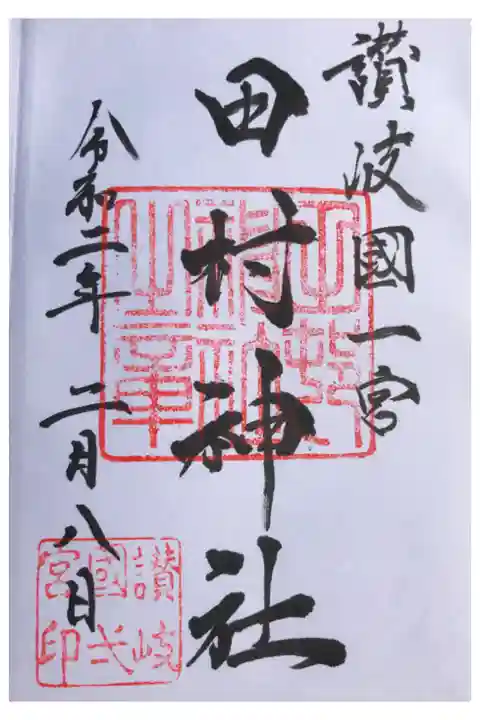 讃岐國一宮
田村神社
令和二年 二月八日
讃岐
國弌
宮印